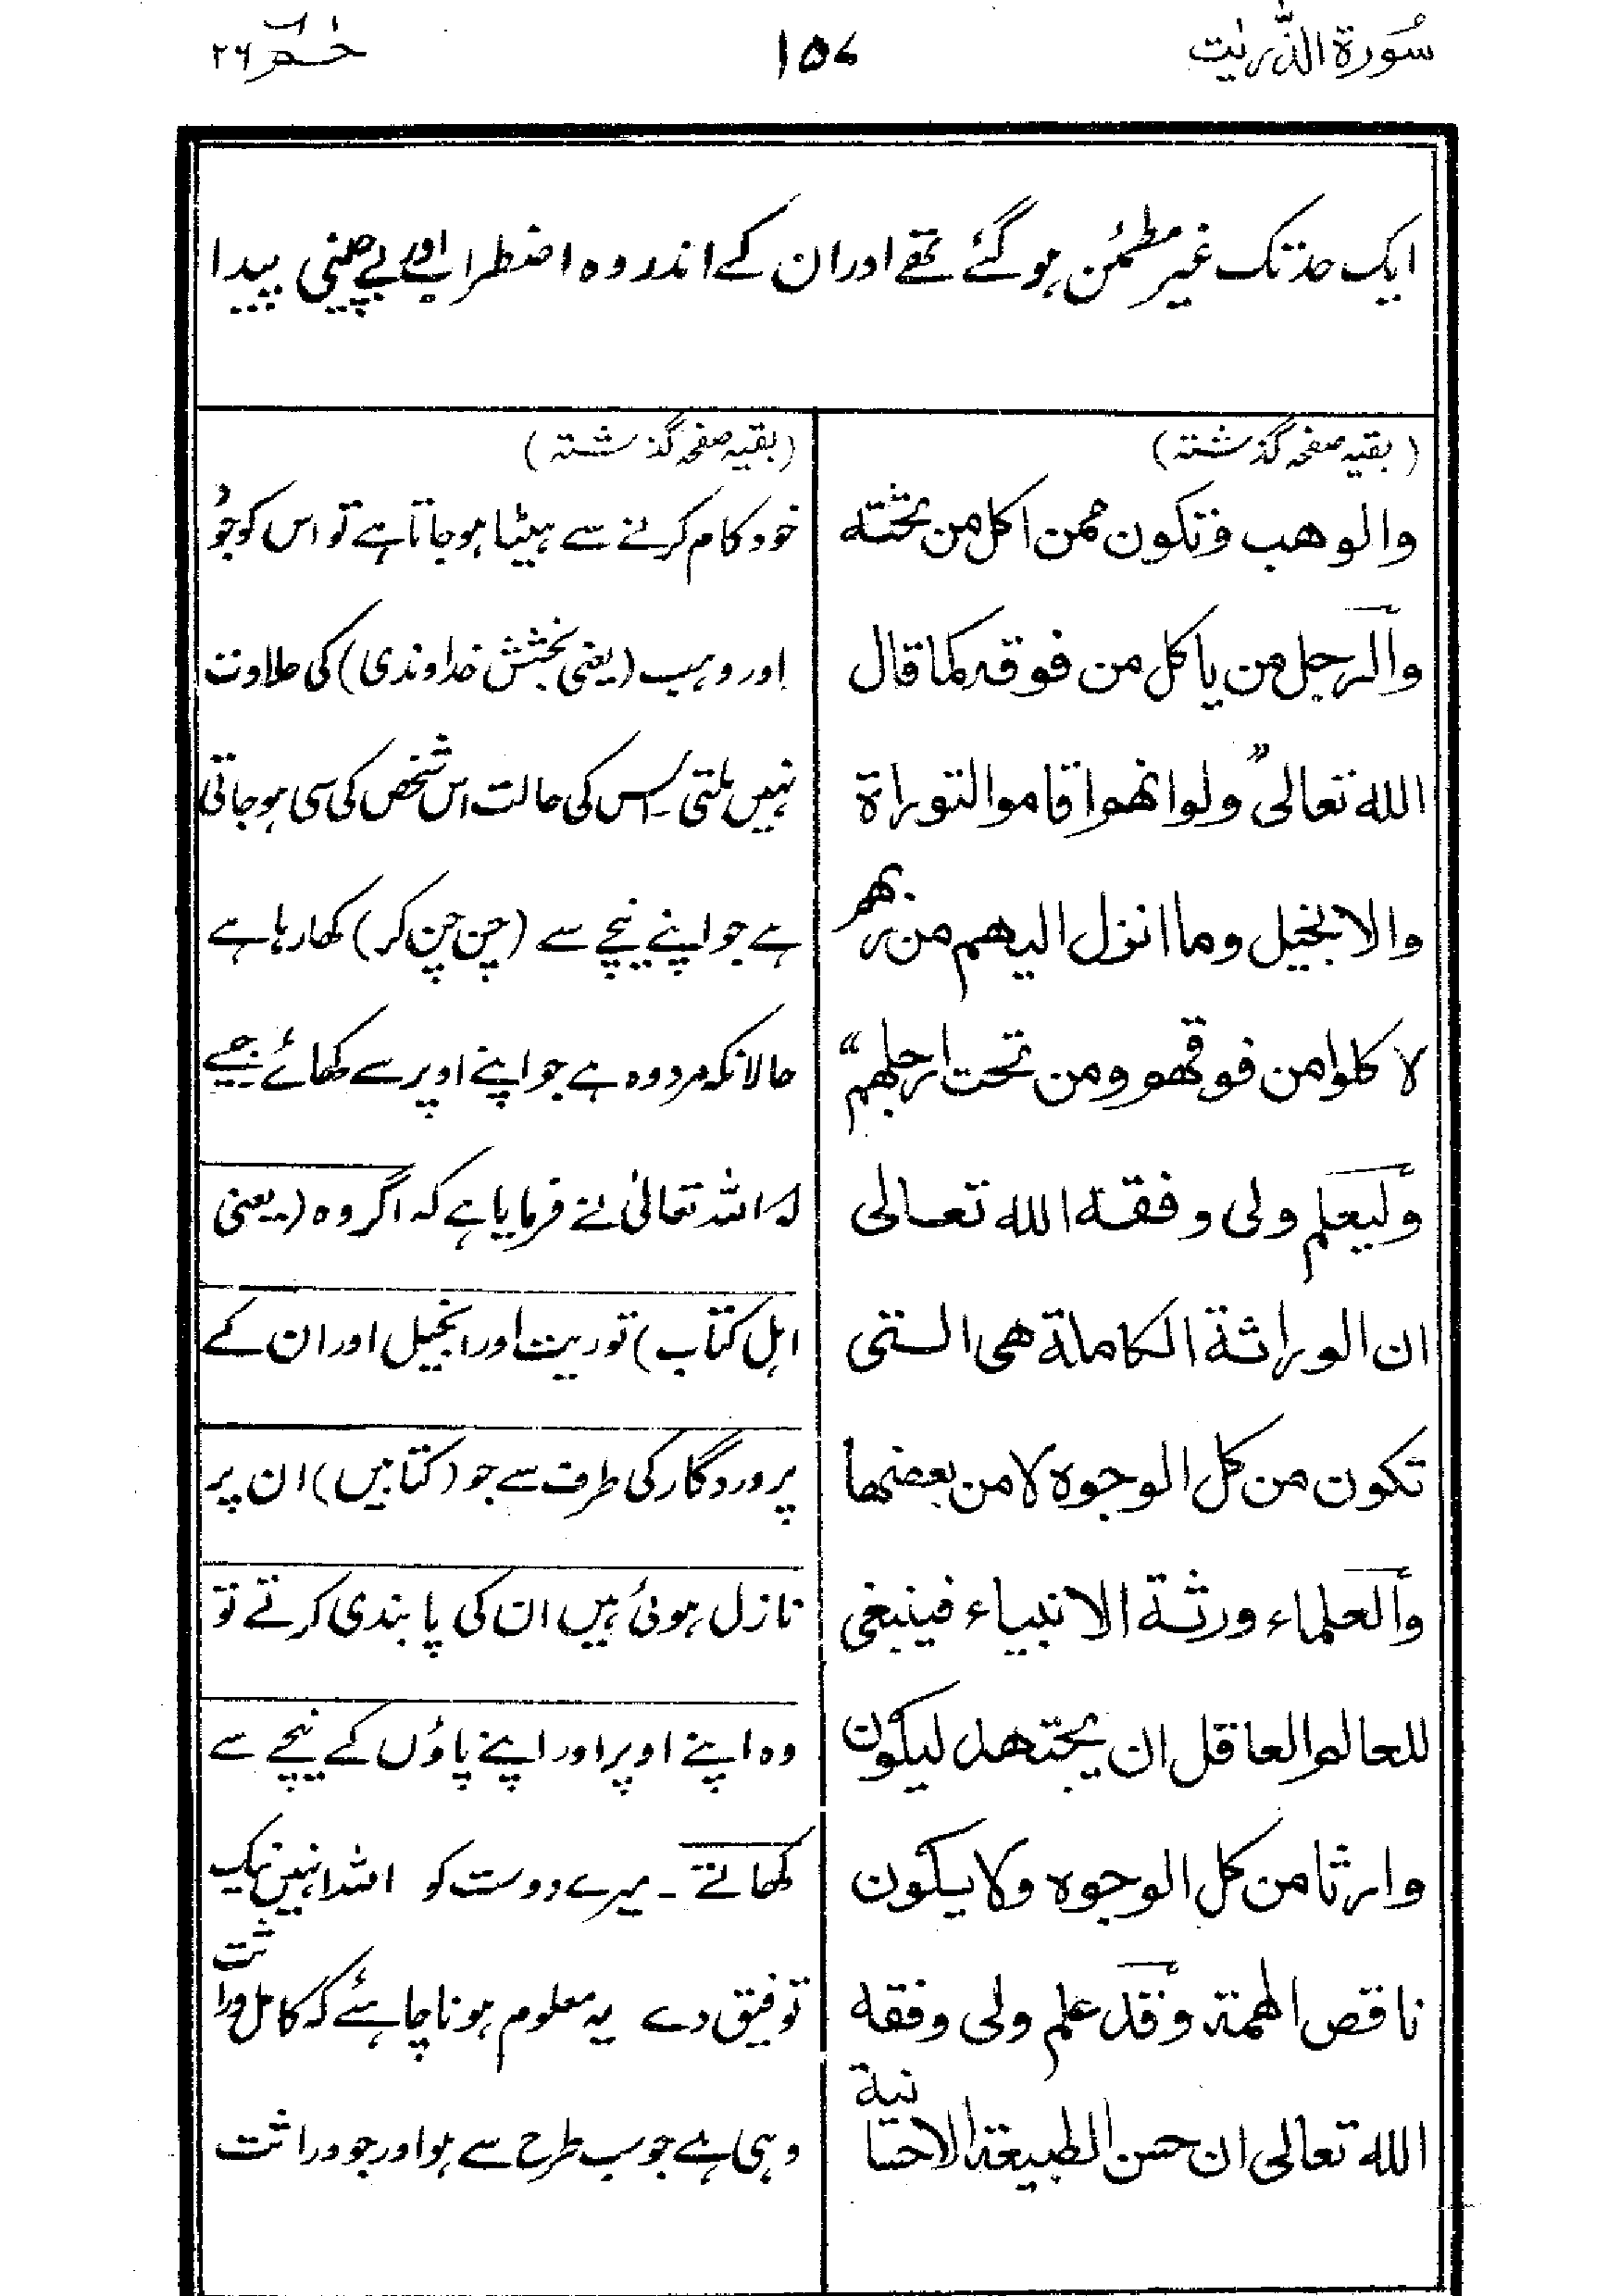 سُورة الذّٰریٰت
۱۵۷
حٰمٓ ۲۶
ایک حد تک غیر مطمئن ہو گئے تھے اور ان کے اندر وہ اضطراب اور بے چینی پیدا
(بقیہ صفحہ گذشتہ)
والوهب فتكون ممن اكل من تحته
والرجل من ياكل من فوقه كما قال
الله تعالى ”ولو انهم اقاموا التوراة
والانجيل وما انزل اليهم من ربهم
لا كلوا من فوقهم ومن تحت ارجلهم“
وليعلم ولى وفقه الله تعالى
ان الوراثة الكاملة هى التى
تكون من كل الوجوه لا من بعضها
والعلماء ورثة الانبياء فينبغى
للعالم العاقل ان يجتهد ليكون
وارثا من كل الوجوه ولا يكون
ناقص الهمة وقد علم ولى وفقه
الله تعالى ان حسن الطبيعة الانسانية
(بقیہ صفحہ گذشتہ)
خود کام کرنے سے ہیٹا ہو جاتا ہے تو اس کو جُو
اور وہب (یعنی بخشش خداوندی) کی حلاوت
نہیں ملتی۔ اس کی حالت اس شخص کی سی ہو جاتی
ہے جو اپنے نیچے سے (چن چن کر) کھا رہا ہے
حالانکہ مرد وہ ہے جو اپنے اوپر سے کھائے جیسے
کہ اللہ تعالیٰ نے فرمایا ہے کہ اگر وہ (یعنی
اہل کتاب) توریت اور انجیل اور ان کے
پروردگار کی طرف سے جو (کتابیں) ان پر
نازل ہوئی ہیں ان کی پابندی کرتے تو
وہ اپنے اوپر اور اپنے پاؤں کے نیچے سے
کھاتے۔ میرے دوست کو اللہ انہیں نیک
توفیق دے یہ معلوم ہونا چاہئے کہ کامل وراثت
وہی ہے جو سب طرح سے ہو اور جو وراثت